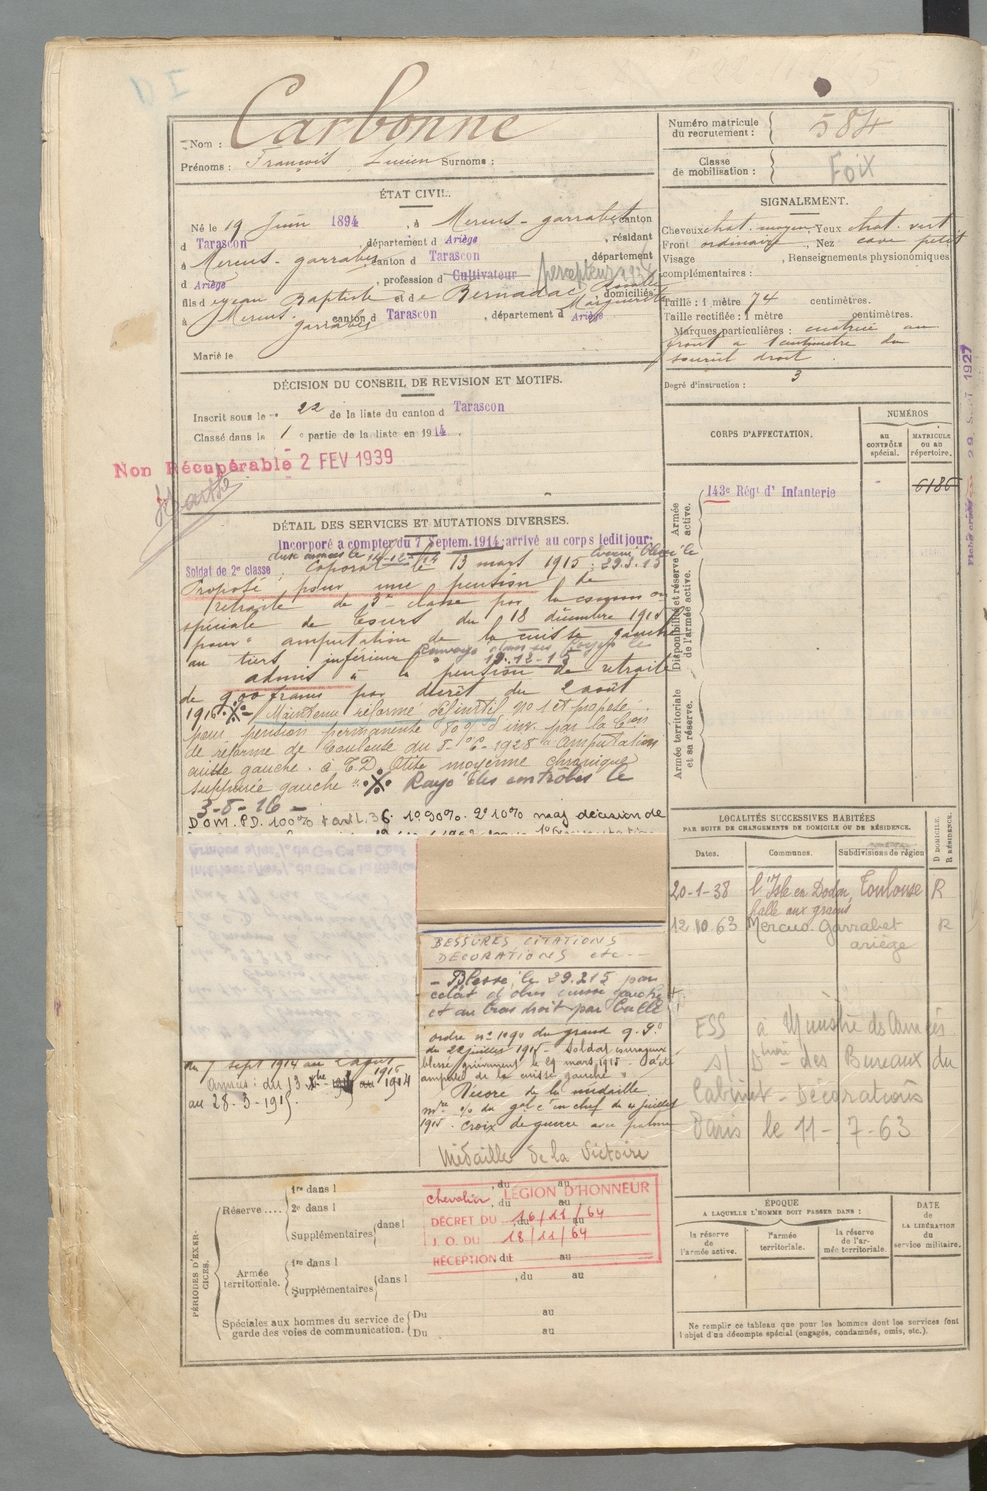 D I
Nom : Carbonne
Prénoms : François Lucien Surnoms :
Numéro matricule du recrutement : 584
Classe de mobilisation : Foix
ÉTAT CIVIL.
Né le 19 Juin 1894, à Mercus-garrabet canton
d Tarascon, département d Ariège, résidant
à Mercus-garrabet, canton d Tarascon, département
d Ariège, profession d Cultivateur percepteur
fils d e Jean Baptiste et de Bernadac Marguerite domiciliés
à Mercus-garrabet, canton d Tarascon, département d Ariège
Marié le
SIGNALEMENT.
Cheveux chat. moyen, Yeux chat. vert
Front ordinaire, Nez cave petit
Visage , Renseignements physionomiques
complémentaires :
Taille : 1 mètre 74 centimètres.
Taille rectifiée : 1 mètre centimètres.
Marques particulières : cicatrice au
front à 1 centimètre du
sourcil droit.
Degré d'instruction : 3
DÉCISION DU CONSEIL DE REVISION ET MOTIFS.
Inscrit sous le n° 22 de la liste du canton d Tarascon
Classé dans la 1 e partie de la liste en 1914.
Non Récupérable 2 FEV 1939
CORPS D'AFFECTATION.
NUMÉROS
au CONTRÔLE spécial.
MATRICULE ou au répertoire.
Armée active.
143e Régt d' Infanterie
6186
Disponibilité et réserve de l'armée active.
Armée territoriale et sa réserve.
DÉTAIL DES SERVICES ET MUTATIONS DIVERSES.
Incorporé a compter du 7 Septem. 1914; arrivé au corps ledit jour;
Soldat de 2e classe; Caporal le 13 mars 1915;
Proposé pour une pension de
retraite de 3e classe par la commission
spéciale de Tours du 18 décembre 1915
pour amputation de la cuisse gauche
au tiers inférieur Renvoyé dans ses foyers le
19.12-15
admis à la pension de retraite
de 900 francs par décret du 2 août
1916. Maintenu réformé définitif n° 1 et proposé
pour pension permanente 80% d'inv. par la Con
de réforme de Toulouse du 1928 "Amputation
cuisse gauche. à T.D. Otite moyenne chronique
suppurée gauche". Rayé des contrôles le
3-8-16
DOM. P.D. 100% 1° 90%. 2° 10% maj décision de
LOCALITÉS SUCCESSIVES HABITÉES
PAR SUITE DE CHANGEMENTS DE DOMICILE OU DE RÉSIDENCE.
Dates. Communes. Subdivisions de région D DOMICILE. R RÉSIDENCE.
20-1-38 l'Isle en Dodon, Toulouse R
halle aux grains
12 10 63 Mercus. Garrabet R
ariège
ESS à Ministre des Armées
s/ des Bureaux du
Cabinet - Décorations
Paris le 11-7-63
BESSURES CITATIONS
DECORATIONS etc
- Blessé, le 29.3.15 par
éclat d'obus cuisse gauche
et au bras droit par balle
ordre n° 1090 du grand q. G.
du 22 juillet 1915 - Soldat courageux
blessé grièvement le 29 mars 1915. a été
amputé de la cuisse gauche"
Décoré de la médaille
mre o/o du gal c' en chef du 4 juillet
1915. Croix de guerre avec palme
Médaille de la Victoire
du 7 sept 1914 au 2 août
1916
Armées: du 13 Xbre 1914
au 28-3-1915.
PÉRIODES D'EXERCICES.
Réserve .... 1re dans l , du au
2e dans l , du au
Supplémentaires dans l du au
Armée territoriale. 1re dans l du au
Supplémentaires dans l , du au
Spéciales aux hommes du service de garde des voies de communication. Du au
Du au
chevalier LÉGION D'HONNEUR
DÉCRET DU 16/11/64
J. O. DU 18/11/64
RÉCEPTION LE
ÉPOQUE
A LAQUELLE L'HOMME DOIT PASSER DANS :
la réserve de l'armée active.
l'armée territoriale.
la réserve de l'armée territoriale.
DATE de LA LIBÉRATION du service militaire.
Ne remplir ce tableau que pour les hommes dont les services font
l'objet d'un décompte spécial (engagés, condamnés, omis, etc.).